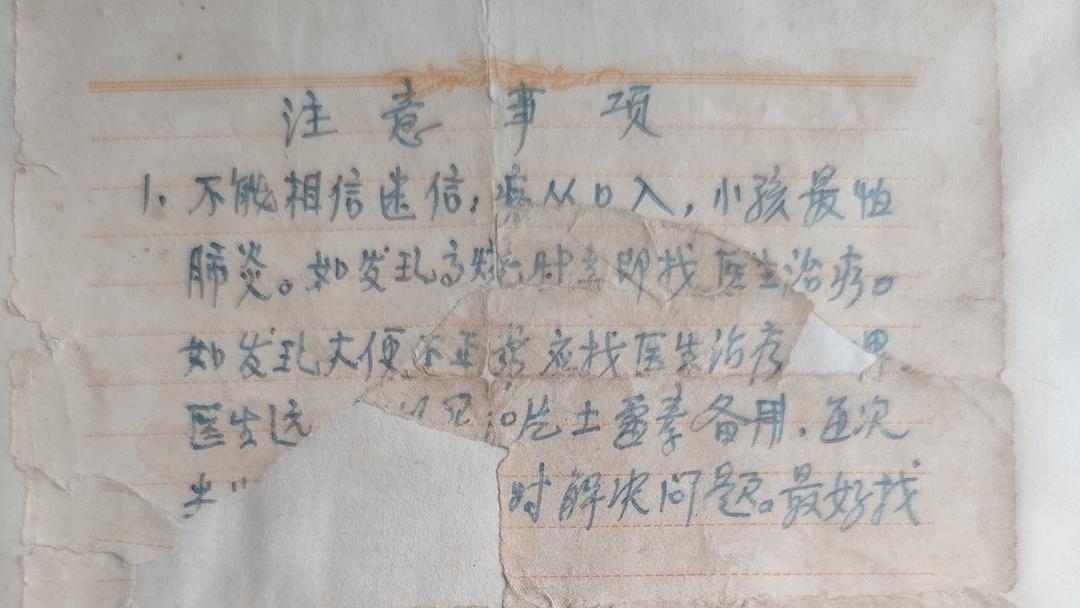 注意事项
1. 不能相信迷信，病从口入，小孩最怕
肺炎。如发现高烧时立即找医生治疗。
如发现大便不正常应找医生治疗
医生远 片土霉素备用，每次
时解决问题。最好找